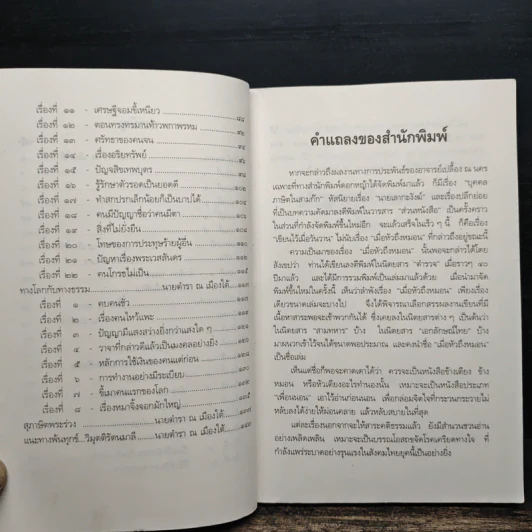 เรื่องที่ ๑๑ - เศรษฐีจอมขี้เหนียว
เรื่องที่ ๑๒ - ตอนทรงทรมานท้าวพกาพรหม
เรื่องที่ ๑๓ - ศรัทธาของคนจน
เรื่องที่ ๑๔ - เรื่องอริยทรัพย์
เรื่องที่ ๑๕ - ปัญจสิขเทพบุตร
เรื่องที่ ๑๖ - รู้รักษาตัวรอดเป็นยอดดี
เรื่องที่ ๑๗ - ทำสกปรกเล็กน้อยก็เป็นบาปได้
เรื่องที่ ๑๘ - คนมีปัญญาชื่อว่าคนมีตา
เรื่องที่ ๑๙ - สิ่งที่ไม่ยั่งยืน
เรื่องที่ ๒๐ - โทษของการประทุษร้ายผู้อื่น
เรื่องที่ ๒๑ - ปัญหาเรื่องพระเวสสันดร
เรื่องที่ ๒๒ - คนโกรธไม่เป็น
ทางโลกกับทางธรรม นายตำรา ณ เมืองใต้
เรื่องที่ ๑ - คบคนชั่ว
เรื่องที่ ๒ - เรื่องคนไหว้แพะ
เรื่องที่ ๓ - ปัญญามีแสงสว่างยิ่งกว่าแสงใด ๆ
เรื่องที่ ๔ - วาจาที่กล่าวดีแล้วเป็นมงคลอย่างยิ่ง
เรื่องที่ ๕ - หลักการใช้เงินของคนแต่ก่อน
เรื่องที่ ๖ - การทำงานอย่างมีระเบียบ
เรื่องที่ ๗ - ขี้เมาคนแรกของโลก
เรื่องที่ ๘ - เรื่องหมาจิ้งจอกมักใหญ่
สุภาษิตพระร่วง นายตำรา ณ เมืองใต้
แนะทางพ้นทุกข์...วิมุตติรัตนมาลี นายตำรา ณ เมืองใต้
คำแถลงของสำนักพิมพ์
หากจะกล่าวถึงผลงานทางการประพันธ์ของอาจารย์เปลื้อง ณ นคร
เฉพาะที่ทางสำนักพิมพ์ดอกหญ้าได้จัดพิมพ์มาแล้ว ก็มีเรื่อง "บุคคล
ภาษิตในสามก๊ก" หัสนิยายเรื่อง "นายเสกกะยังม์" และเรื่องปลีกย่อย
ที่เป็นบทความคัดมาลงตีพิมพ์ในวารสาร "ส่วนหนังสือ" เป็นครั้งคราว
ในส่วนที่กำลังจัดพิมพ์ซึ่งก็ จะแล้วเสร็จในเร็ว ๆ นี้ ก็คือเรื่อง
"เขียนไว้เมื่อวันวาน" ไม่นับเรื่อง "เมื่อหัวถึงหมอน" ที่กล่าวถึงอยู่ขณะนี้
ความเป็นมาของเรื่อง "เมื่อหัวถึงหมอน" นั้นพอจะกล่าวได้โดย
สังเขปว่า ท่านได้เขียนลงตีพิมพ์ในนิตยสาร "ตำรวจ" เมื่อราวๆ ๔๐
ปีมาแล้ว และได้มีการรวมพิมพ์เป็นเล่มมาแล้วด้วย เมื่อนำมาจัด
พิมพ์ขึ้นใหม่ในครั้งนี้ เห็นว่าลำพังเรื่อง "เมื่อหัวถึงหมอน" เพียงเรื่อง
เดียวขนาดเล่มจะบางไป จึงได้พิจารณาเลือกสรรผลงานเขียนที่มี
เนื้อหาสาระพอจะเข้าพวกกันได้ ซึ่งเคยลงในนิตยสารต่าง ๆ เป็นต้นว่า
ในนิตยสาร "สามทหาร" บ้าง ในนิตยสาร "เอกลักษณ์ไทย" บ้าง
มาผนวกเข้าไว้จนได้ขนาดพอประมาณ และคงนำชื่อ "เมื่อหัวถึงหมอน"
เป็นชื่อเล่ม
เห็นแต่ชื่อก็พอจะคาดเดาได้ว่า ควรจะเป็นหนังสือข้างเตียง ข้าง
หมอน หรือหัวเตียงอะไรทำนองนั้น เหมาะจะเป็นหนังสือประเภท
"เพื่อนนอน" เอาไว้อ่านก่อนนอน เพื่อกล่อมจิตใจที่กระวนกระวายไม่
หลับลงได้ง่ายให้ผ่อนคลาย แล้วหลับสบายในที่สุด
แต่ละเรื่องนอกจากจะให้สาระคติธรรมแล้ว ยังมีสำนวนชวนอ่าน
อย่างเพลิดเพลิน เหมาะจะเป็นบรรณโอสถขจัดโรคเครียดทางใจ ที่
กำลังแพร่ระบาดอย่างรุนแรงในสังคมไทยยุคนี้เป็นอย่างยิ่ง